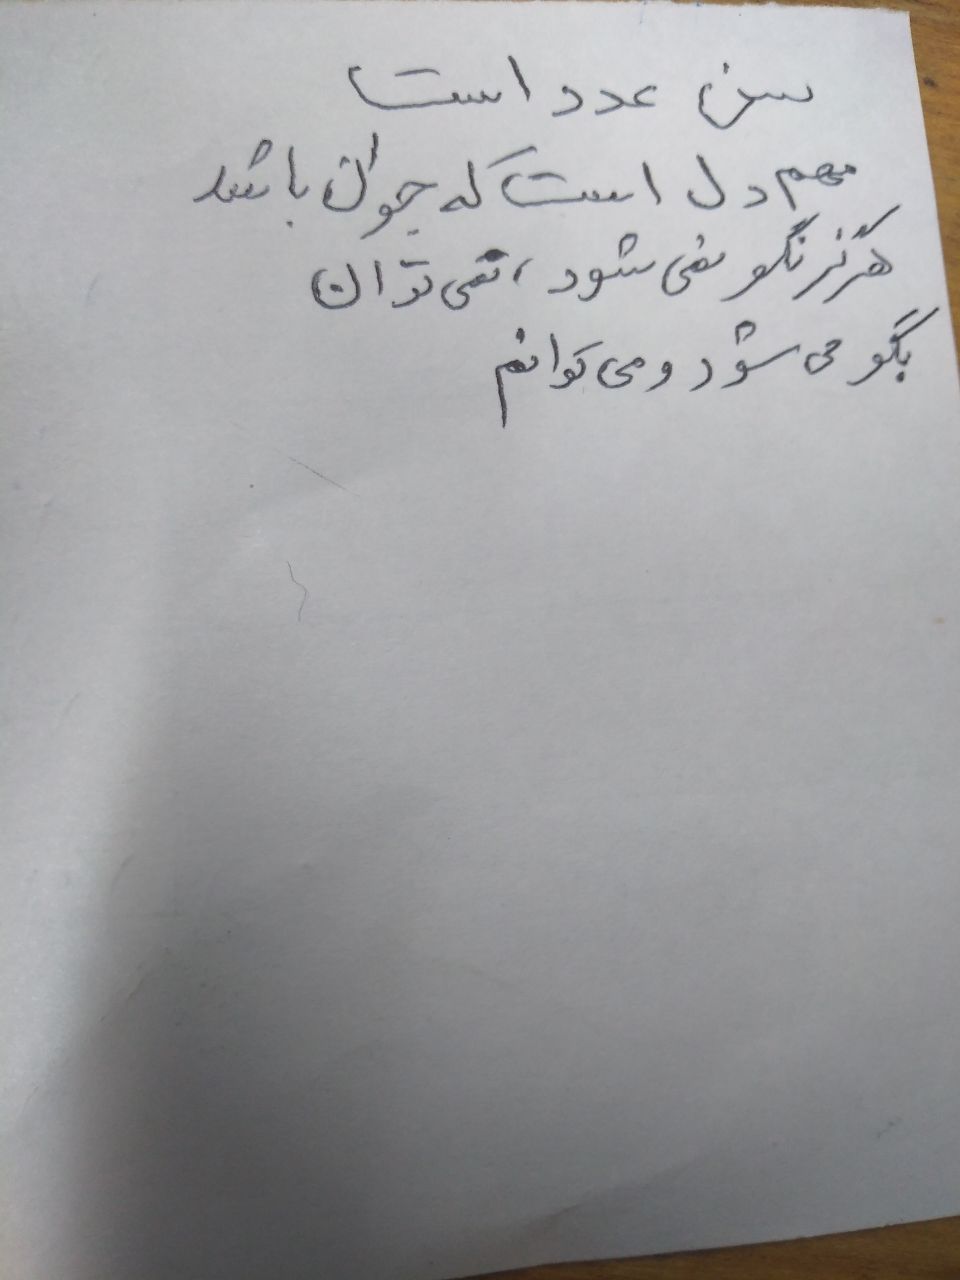 سن عدد است
مهم دل است که جوان باشد
هرگز نگو نمی شود، نمی توان
بگو می شود و می توانم